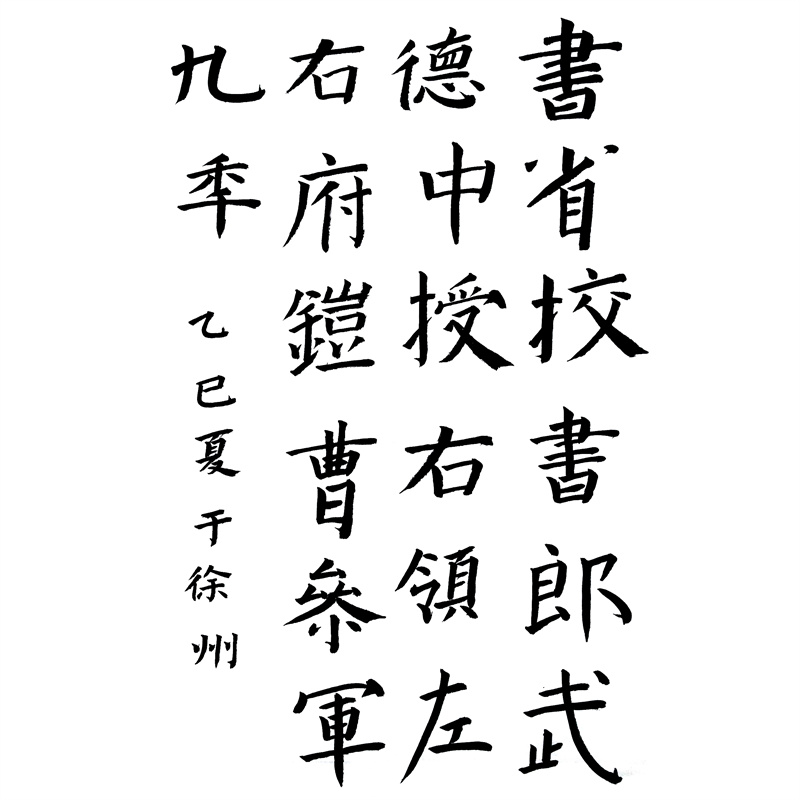 書省挍書郎武
德中授右領左
右府鎧曹叅軍
九年
乙巳夏于徐州